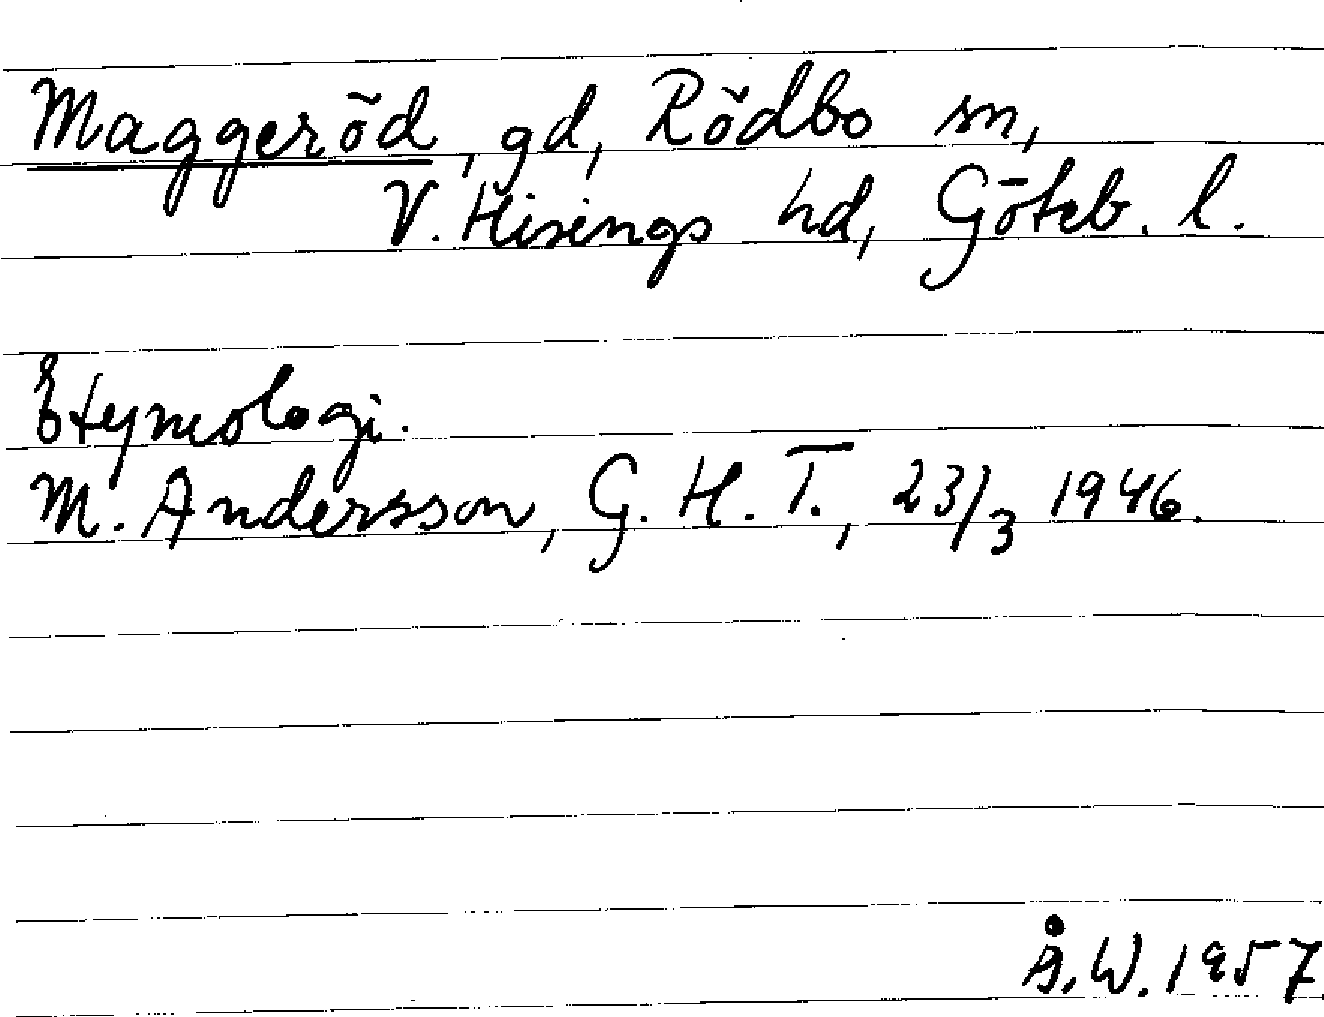 Maggeröd, gd, Rödbo sn,
V. Hisings hd, Göteb. l.
Etymologi.
M. Andersson, G. H. T., 23/3 1946.
Å. W. 1957